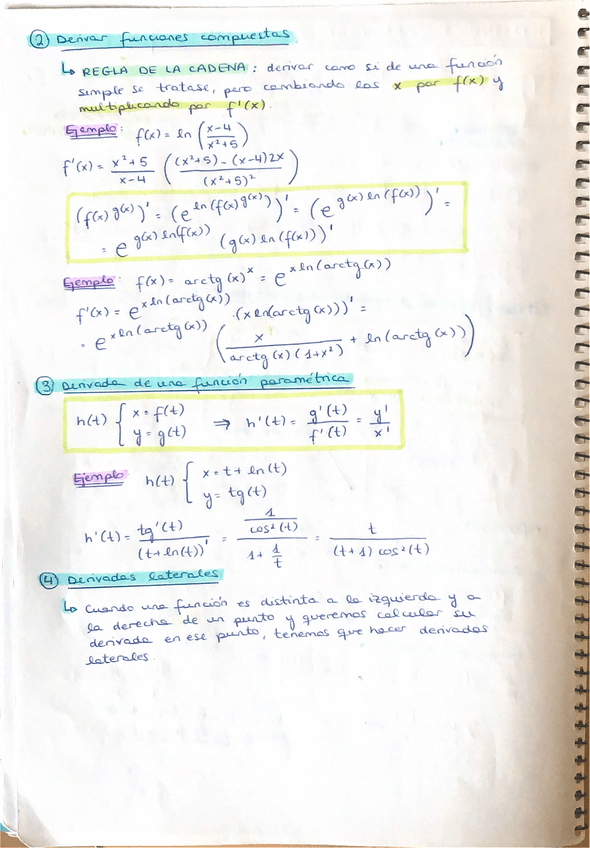 ② Derivar funciones compuestas
↳ REGLA DE LA CADENA : derivar como si de una función
simple se tratase, pero cambiando las x por f(x) y
multiplicando por f'(x).
Ejemplo: f(x) = ln ((x-4)/(x²+5))
f'(x) = (x²+5)/(x-4) (((x²+5) - (x-4)2x)/(x²+5)²)
(f(x)^g(x))' = (e^ln(f(x)^g(x)))' = (e^(g(x) ln(f(x))))' =
= e^(g(x) ln(f(x))) (g(x) ln(f(x)))'
Ejemplo: f(x) = arctg(x)^x = e^(x ln(arctg(x)))
f'(x) = e^(x ln(arctg(x))) · (x ln(arctg(x)))' =
= e^(x ln(arctg(x))) (x/(arctg(x)(1+x²)) + ln(arctg(x)))
③ Derivada de una función paramétrica
h(t) { x = f(t) y = g(t) ⇒ h'(t) = g'(t)/f'(t) = y'/x'
Ejemplo h(t) { x = t + ln(t) y = tg(t)
h'(t) = tg'(t)/(t+ln(t))' = (1/cos²(t))/(1+ 1/t) = t/((t+1) cos²(t))
④ Derivadas laterales
↳ Cuando una función es distinta a la izquierda y a
la derecha de un punto y queremos calcular su
derivada en ese punto, tenemos que hacer derivadas
laterales.